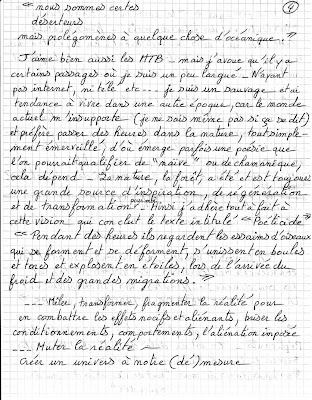 « nous sommes certes
④
déserteurs
mais prolégomènes à quelque chose d'océanique. »
J'aime bien aussi les MTB - mais j'avoue qu'il y a
certains passages où je suis un peu largué - N'ayant
pas internet, ni télé etc... je suis un sauvage et ai
tendance à vivre dans une autre époque, car le monde
actuel m'insupporte (je ne sais même pas si ça se dit)
et préfère passer des heures dans la nature, tout simple-
ment émerveillé, d'où émerge parfois une poésie que
l'on pourrait qualifier de "naïve" ou de chamanique,
cela dépend - La nature, la forêt, a été et est toujours
une grande source d'inspiration, de régénération
et de transformation - Aussi j'adhère tout à fait à
cette vision qui conclut le texte intitulé
« Pendant des heures ils regardent les essaims d'oiseaux
qui se forment et se déforment, s'unissent en boules
et tores et explosent en étoiles, lors de l'arrivée du
froid et des grandes migrations. »
--- Muter, transformer, fragmenter la réalité pour
en combattre les effets nocifs et aliénants, briser les
conditionnements, comportements, l'aliénation imposée
--- Muter la réalité -
Créer un univers à notre (dé)mesure